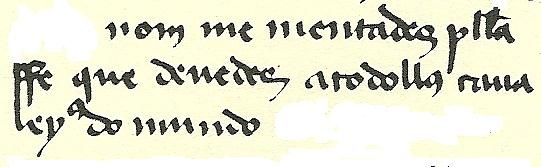 nom me mentades pllã
ffe que deuedes atodollꝯ caua
ley do mundo